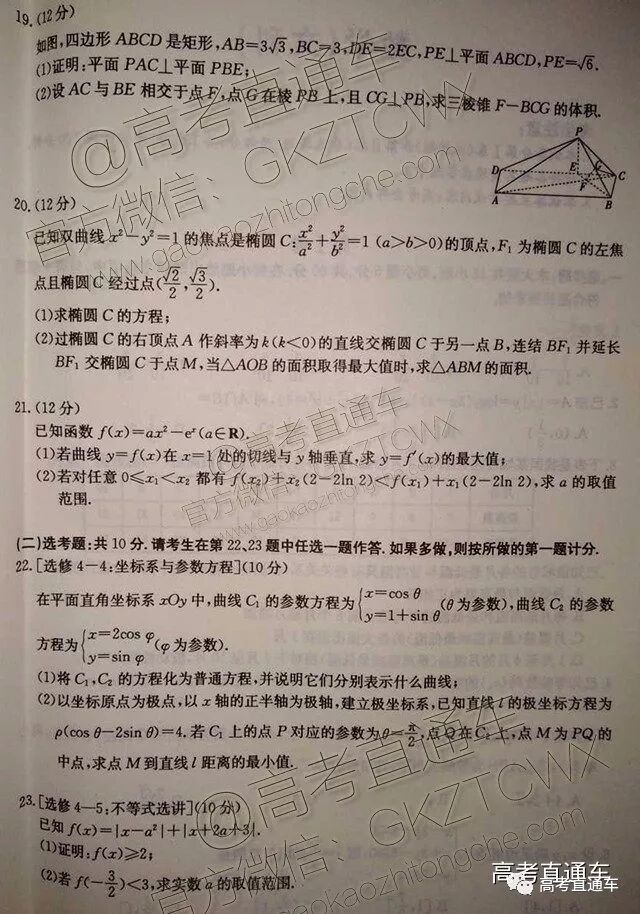 19.(12分)
如图,四边形 ABCD 是矩形,AB=3√3,BC=3,DE=2EC,PE⊥平面 ABCD,PE=√6.
(1)证明:平面 PAC⊥平面 PBE;
(2)设 AC 与 BE 相交于点 F,点 G 在棱 PB 上,且 CG⊥PB,求三棱锥 F-BCG 的体积.
P
D E G C
F
A B
20.(12分)
已知双曲线 x²-y²=1 的焦点是椭圆 C:x²/a²+y²/b²=1 (a>b>0)的顶点,F₁ 为椭圆 C 的左焦
点且椭圆 C 经过点(√2/2,√3/2).
(1)求椭圆 C 的方程;
(2)过椭圆 C 的右顶点 A 作斜率为 k(k<0)的直线交椭圆 C 于另一点 B,连结 BF₁ 并延长
BF₁ 交椭圆 C 于点 M,当△AOB 的面积取得最大值时,求△ABM 的面积.
21.(12分)
已知函数 f(x)=ax²-eˣ(a∈R).
(1)若曲线 y=f(x)在 x=1 处的切线与 y 轴垂直,求 y=f′(x)的最大值;
(2)若对任意 0≤x₁<x₂ 都有 f(x₂)+x₂(2-2ln 2)<f(x₁)+x₁(2-2ln 2),求 a 的取值
范围.
(二)选考题:共 10 分.请考生在第 22、23 题中任选一题作答.如果多做,则按所做的第一题计分.
22.[选修 4-4:坐标系与参数方程](10分)
在平面直角坐标系 xOy 中,曲线 C₁ 的参数方程为{x=cos θ y=1+sin θ (θ 为参数),曲线 C₂ 的参数
方程为{x=2cos φ y=sin φ (φ 为参数).
(1)将 C₁,C₂ 的方程化为普通方程,并说明它们分别表示什么曲线;
(2)以坐标原点为极点,以 x 轴的正半轴为极轴,建立极坐标系,已知直线 l 的极坐标方程为
ρ(cos θ-2sin θ)=4.若 C₁ 上的点 P 对应的参数为 θ=π/2,点 Q 在 C₂ 上,点 M 为 PQ 的
中点,求点 M 到直线 l 距离的最小值.
23.[选修 4-5:不等式选讲](10分)
已知 f(x)=|x-a²|+|x+2a+3|.
(1)证明:f(x)≥2;
(2)若 f(-3/2)<3,求实数 a 的取值范围.
@高考直通车
官方微信:GKZTCWX
www.gaokaozhitongche.com
@高考直通车
官方微信:GKZTCWX
www.gaokaozhitongche.com
@高考直通车
官方微信:GKZTCWX
www.gaokaozhitongche.com
高考直通车
高考直通车